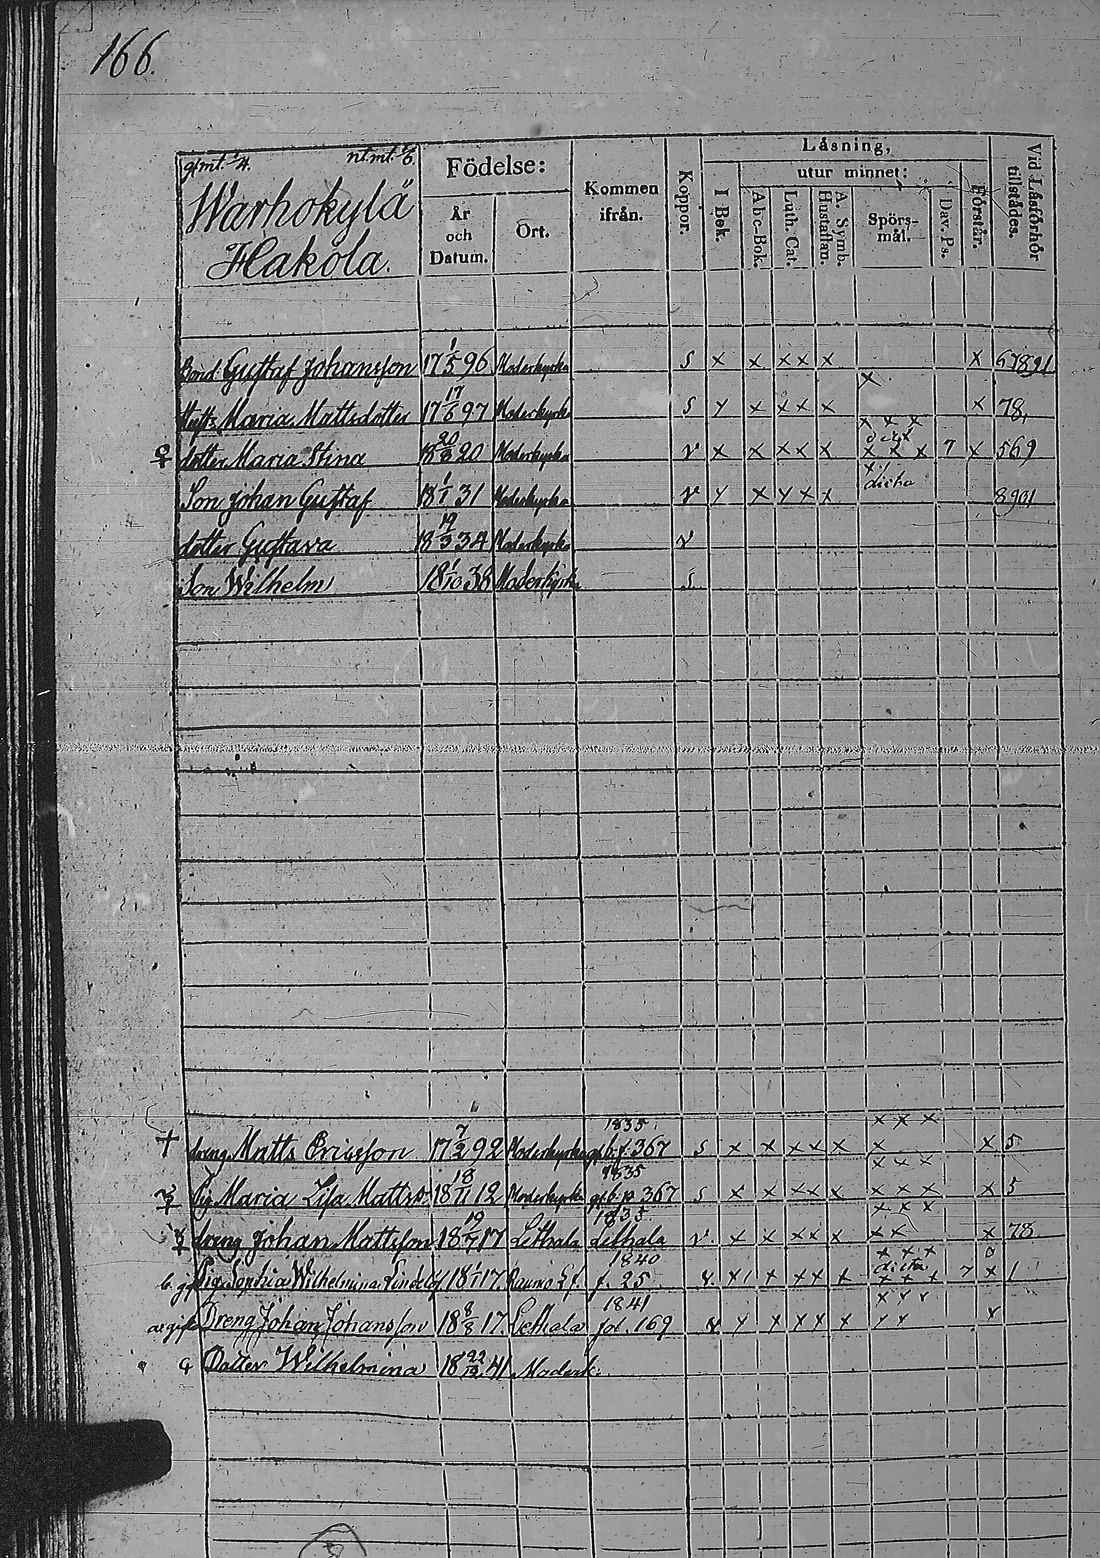 166.
gl.mt. 1/4. nt.mt. 1/6.
Warhokylä
Hakola.
Födelse:
År och Datum.
Ort.
Kommen ifrån.
Koppor.
Läsning,
I Bok.
utur minnet:
Abc-Bok.
Luth. Cat.
Hustaflan.
A. Symb.
Spörsmål.
Dav. Ps.
Förstår.
Vid Läsförhör tillstådes.
Bond. Gustaf Johansson 17 1/5 96 Moderkyrka s x x x x x x x 67891
Hustr. Maria Mattsdotter 17 17/6 97 Moderkyrk s y x x x x x x x x 78,
dotter Maria Stina 20 Moderkyrka v x x x x x x x x 7 x 569
Son Johan Gustaf 18 1/1 31 Moderkyrka v y x y x x dicha 8901
dotter Gustava 18 19/3 34 Moderkyrka v
Son Wilhelm 18 1/10 38 Moderkyrka s
† dreng Matts Ericsson 17 7/2 92 Moderkyrka 1835 367 s x x x x x x x x x x 5
Pig. Maria Lisa Mattsd 18 18/11 12 Moderkyrka 1835 367 s x x x x x x x x x x x x x 5
dreng Johan Mattsson 18 19/7 17 Lethala 1835 Lethala v x x x x x x x x x x x 78
Pig. Sophia Wilhelmina 18 1/1 17. 1840 f. 25 x x x x x x x x dicha x x x 7 x 1
Dreng Johan Johansson 18 8/8 17. Lethala 1841 fol. 169 y x x x x x y y y y x
Dotter Wilhelmina 18 22/12 41 Moderk.